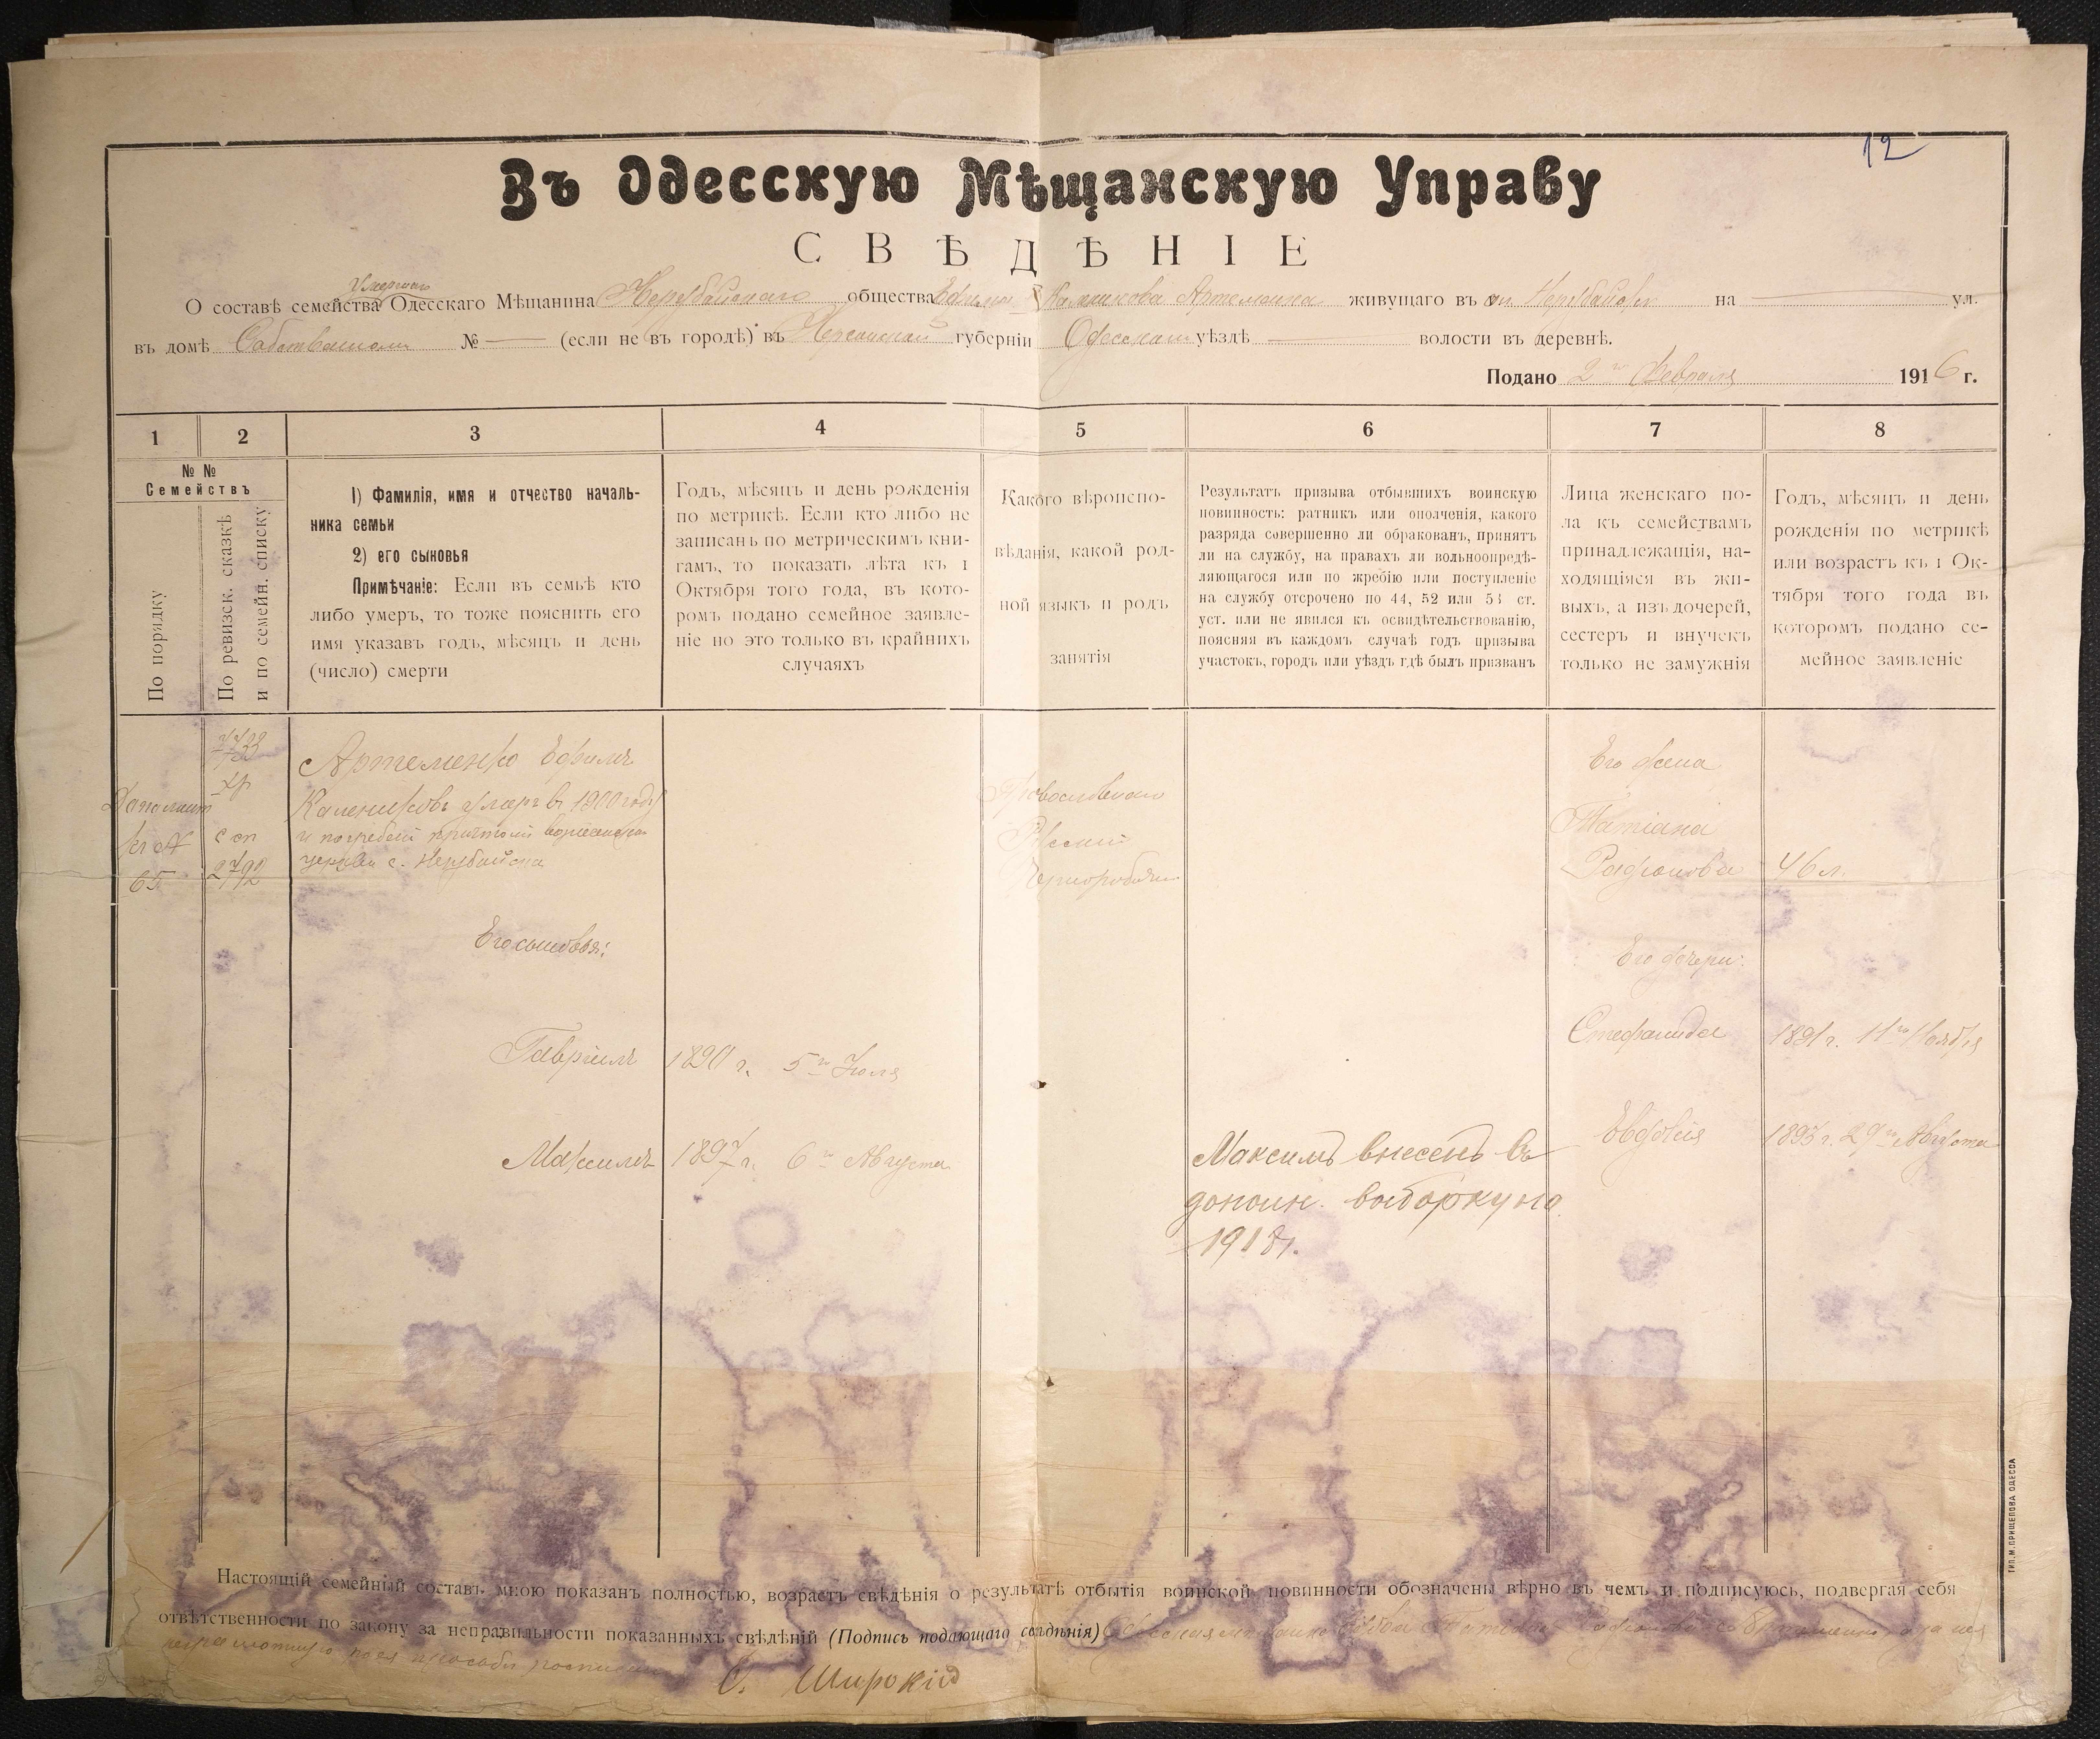 12
Въ Одесскую Мѣщанскую Управу
СВѢДѢНІЕ
Умершаго
О составѣ семейства Одесскаго Мѣщанина Нерубайскаго общества Ефима Артеменка живущаго въ Нерубайск на ул.
въ домѣ Собственномъ № (если не въ городѣ) въ Херсонской губерніи Одесскаго уѣздѣ волости въ деревнѣ.
Подано 2го Февраля 1916 г.
1 2 3 4 5 6 7 8
№ №
Семействъ
По порядку
По ревизск. сказкѣ
и по семейн. списку
1) Фамилія, имя и отчество началь-
ника семьи
2) его сыновья
Примѣчаніе: Если въ семьѣ кто
либо умеръ, то тоже пояснить его
имя указавъ годъ, мѣсяцъ и день
(число) смерти
Годъ, мѣсяцъ и день рожденія
по метрикѣ. Если кто либо не
записанъ по метрическимъ кни-
гамъ, то показать лѣта къ 1
Октября того года, въ кото-
ромъ подано семейное заявле-
ніе но это только въ крайнихъ
случаяхъ
Какого вѣроиспо-
вѣданія, какой род-
ной языкъ и родъ
занятія
Результатъ призыва отбывшихъ воинскую
повинность: ратникъ или ополченія, какого
разряда совершенно ли обракованъ, принятъ
ли на службу, на правахъ ли вольноопредѣ-
ляющагося или по жребію или поступленіе
на службу отсрочено по 44, 52 или 53 ст.
уст. или не явился къ освидѣтельствованію,
поясняя въ каждомъ случаѣ годъ призыва
участокъ, городъ или уѣздъ гдѣ былъ призванъ
Лица женскаго по-
ла къ семействамъ
принадлежащія, на-
ходящіяся въ жи-
выхъ, а изъ дочерей,
сестеръ и внучекъ
только не замужнія
Годъ, мѣсяцъ и день
рожденія по метрикѣ
или возрастъ къ 1 Ок-
тября того года въ
которомъ подано се-
мейное заявленіе
Артеменко Ефимъ
умеръ въ 1900 году
и погребенъ причтомъ
церкви с. Нерубайска
65
с сп
2792
Православнаго
Русскій
Чернорабочій
Его жена
Татіана
Родіонова 46 л.
Его сыновья:
Его дочери:
Гавріилъ 1890 г. 5го Іюля
Стефанида 1891 г. 11го Ноября
Максимъ 1897 г. 6го Августа
Максимъ внесенъ въ
дополн. выборку на
1918 г.
Евдокія 1893 г. 29го Августа
Настоящій семейный составъ мною показанъ полностью, возрастъ свѣдѣнія о результатѣ отбытія воинской повинности обозначены вѣрно въ чемъ и подписуюсь, подвергая себя
отвѣтственности по закону за неправильности показанныхъ свѣдѣній (Подпись подающаго свѣдѣнія) Одесская мѣщанка вдова Татіана Родіонова Артеменко, а за нея
неграмотную по ея просьбѣ росписался
С. Широкій
ТИП. М. ПРИЩЕПОВА ОДЕССА